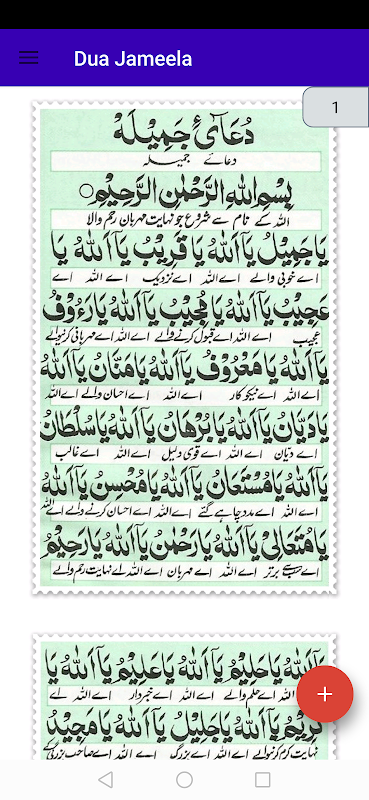 Dua Jameela
1
دُعَآئِ جَمِيْلَهْ
دعائے جمیلہ
بِسْمِ اللهِ الرَّحْمٰنِ الرَّحِيْمِ○
اللہ کے نام سے شروع جو نہایت مہربان رحم والا
يَا جَمِيْلُ يَآ اَللهُ يَا قَرِيْبُ يَآ اَللهُ يَا
اے خوبی والے اے اللہ اے نزدیک اے اللہ اے
عَجِيْبُ يَآ اَللهُ يَا مُجِيْبُ يَآ اَللهُ يَا رَءُوْفُ
عجیب اے اللہ اے قبول کرنے والے اے اللہ اے مہربانی کرنیوالے
يَآ اَللهُ يَا مَعْرُوْفُ يَآ اَللهُ يَا مَنَّانُ يَآ اَللهُ
اے اللہ اے نیکوکار اے اللہ اے احسان والے اے اللہ
يَا دَيَّانُ يَآ اَللهُ يَا بُرْهَانُ يَآ اَللهُ يَا سُلْطَانُ
اے دیان اے اللہ اے قوی دلیل اے اللہ اے غالب
يَآ اَللهُ يَا مُسْتَعَانُ يَآ اَللهُ يَا مُحْسِنُ يَآ اَللهُ
اے اللہ اے مدد چاہے گئے اے اللہ اے احسان کرنے والے اے اللہ
يَا مُتَعَالِيْ يَآ اَللهُ يَا رَحْمٰنُ يَآ اَللهُ يَا رَحِيْمُ
اے سب سے برتر اے اللہ اے مہربان اے اللہ اے نہایت رحم والے
يَآ اَللهُ يَا حَلِيْمُ يَآ اَللهُ يَا عَلِيْمُ يَآ اَللهُ يَا
اللہ اے حلم والے اے اللہ اے خبردار اے اللہ اے
كَرِيْمُ يَآ اَللهُ يَا جَلِيْلُ يَآ اَللهُ يَا مَجِيْدُ
نہایت کرم کرنیوالے اے اللہ اے بزرگ اے اللہ اے صاحب بزرگی